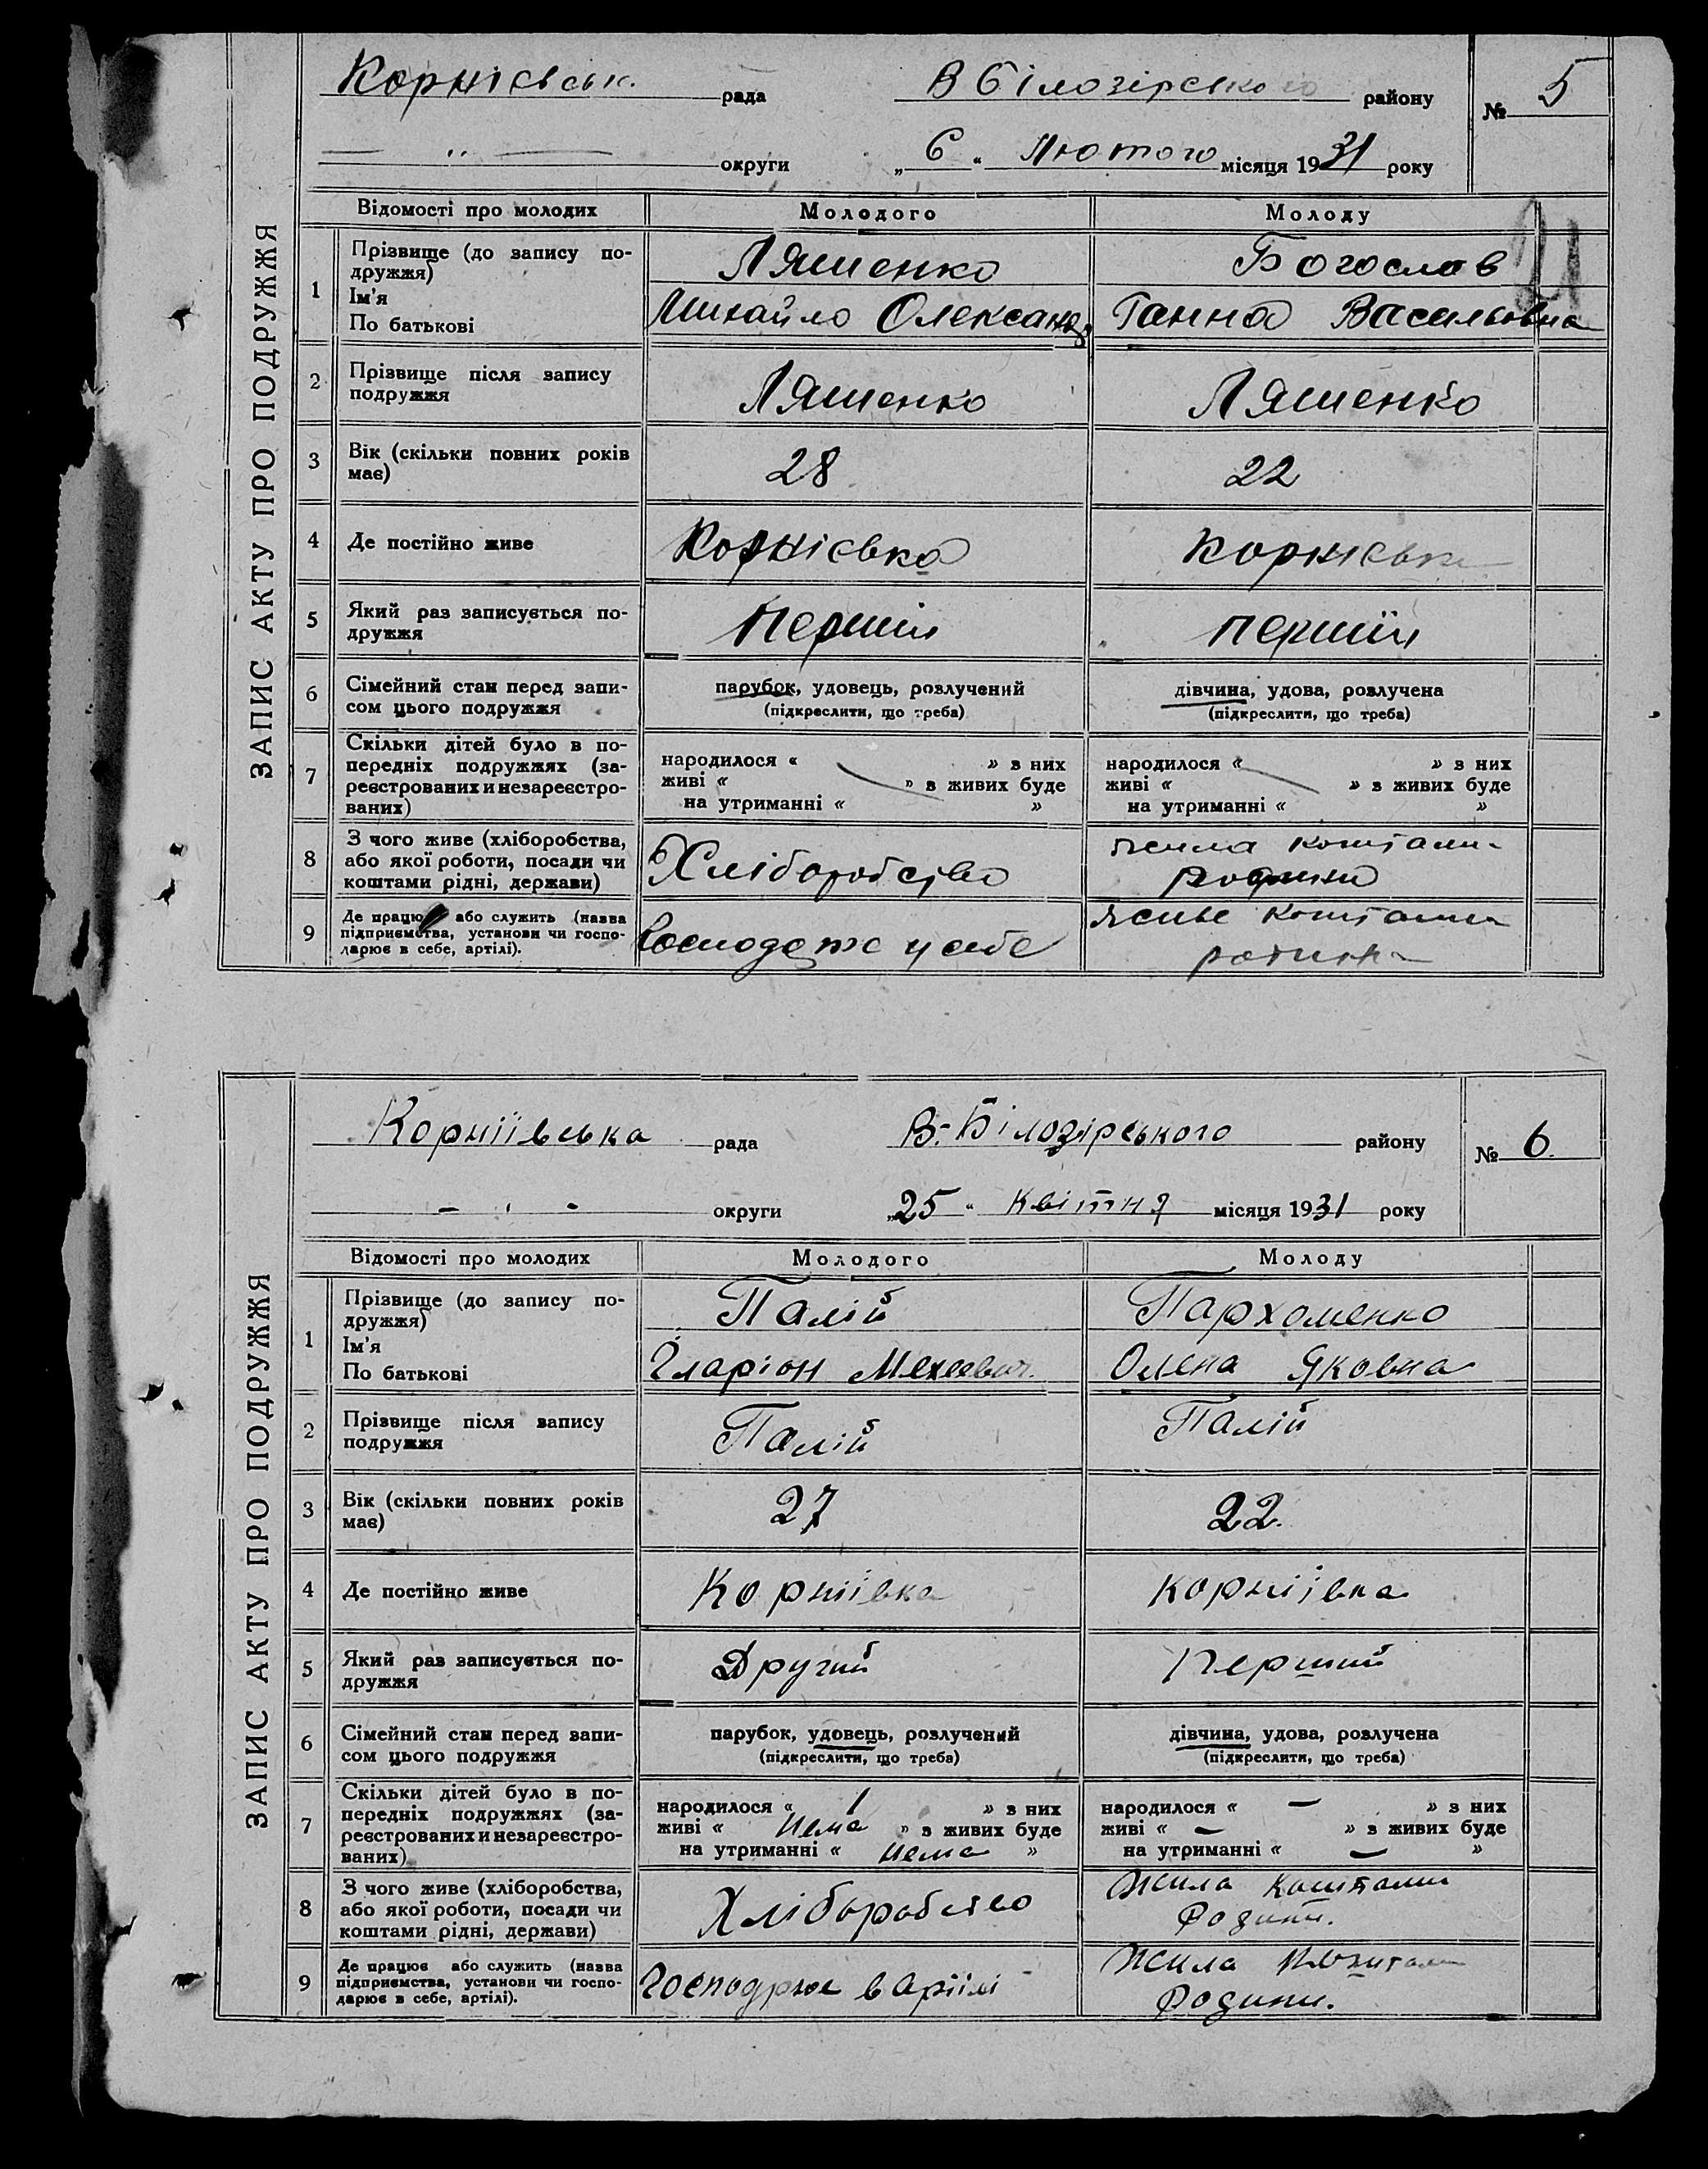 ЗАПИС АКТУ ПРО ПОДРУЖЖЯ
Корнієвськ. рада В Білозірського району № 5
— " — округи „ 6 " Лютого місяця 1931 року
21
Відомості про молодих Молодого Молоду
1 Прізвище (до запису по-
дружжя) Ляшенко Богослав
Ім'я
По батькові Михайло Олександ Ганна Васильовна
2 Прізвище після запису
подружжя Ляшенко Ляшенко
3 Вік (скільки повних років
має) 28 22
4 Де постійно живе Корнієвка Корнієвка
5 Який раз записується по-
дружжя перший перший
6 Сімейний стан перед запи-
сом цього подружжя парубок, удовець, розлучений дівчина, удова, розлучена
(підкреслити, що треба) (підкреслити, що треба)
7 Скільки дітей було в по-
передніх подружжях (за-
реєстрованих и незареєстро-
ваних) народилося « » з них народилося « » з них
живі « » з живих буде живі « » з живих буде
на утриманні « » на утриманні « »
8 З чого живе (хліборобства,
або якої роботи, посади чи
коштами рідні, держави) Хліборобство жила коштами
родини
9 Де працює або служить (назва
підприємства, установи чи госпо-
дарює в себе, артілі). у себе живе коштами
родини
ЗАПИС АКТУ ПРО ПОДРУЖЖЯ
Корніївська рада В.-Білозірського району № 6.
— " — округи „25 " Квітня місяця 1931 року
Відомості про молодих Молодого Молоду
1 Прізвище (до запису по-
дружжя) Палій Пархоменко
Ім'я
По батькові Іларіон Мехеевич. Олена Яковна
2 Прізвище після запису
подружжя Палій Палій
3 Вік (скільки повних років
має) 27 22.
4 Де постійно живе Корніївка Корніївка
5 Який раз записується по-
дружжя Другий Перший
6 Сімейний стан перед запи-
сом цього подружжя парубок, удовець, розлучений дівчина, удова, розлучена
(підкреслити, що треба) (підкреслити, що треба)
7 Скільки дітей було в по-
передніх подружжях (за-
реєстрованих и незареєстро-
ваних) народилося « 1 » з них народилося « — » з них
живі « нема » з живих буде живі « — » з живих буде
на утриманні « нема » на утриманні « — »
8 З чого живе (хліборобства,
або якої роботи, посади чи
коштами рідні, держави) Хліборобство Жила коштами
родини.
9 Де працює або служить (назва
підприємства, установи чи госпо-
дарює в себе, артілі). в Артілі Жила коштами
родини.